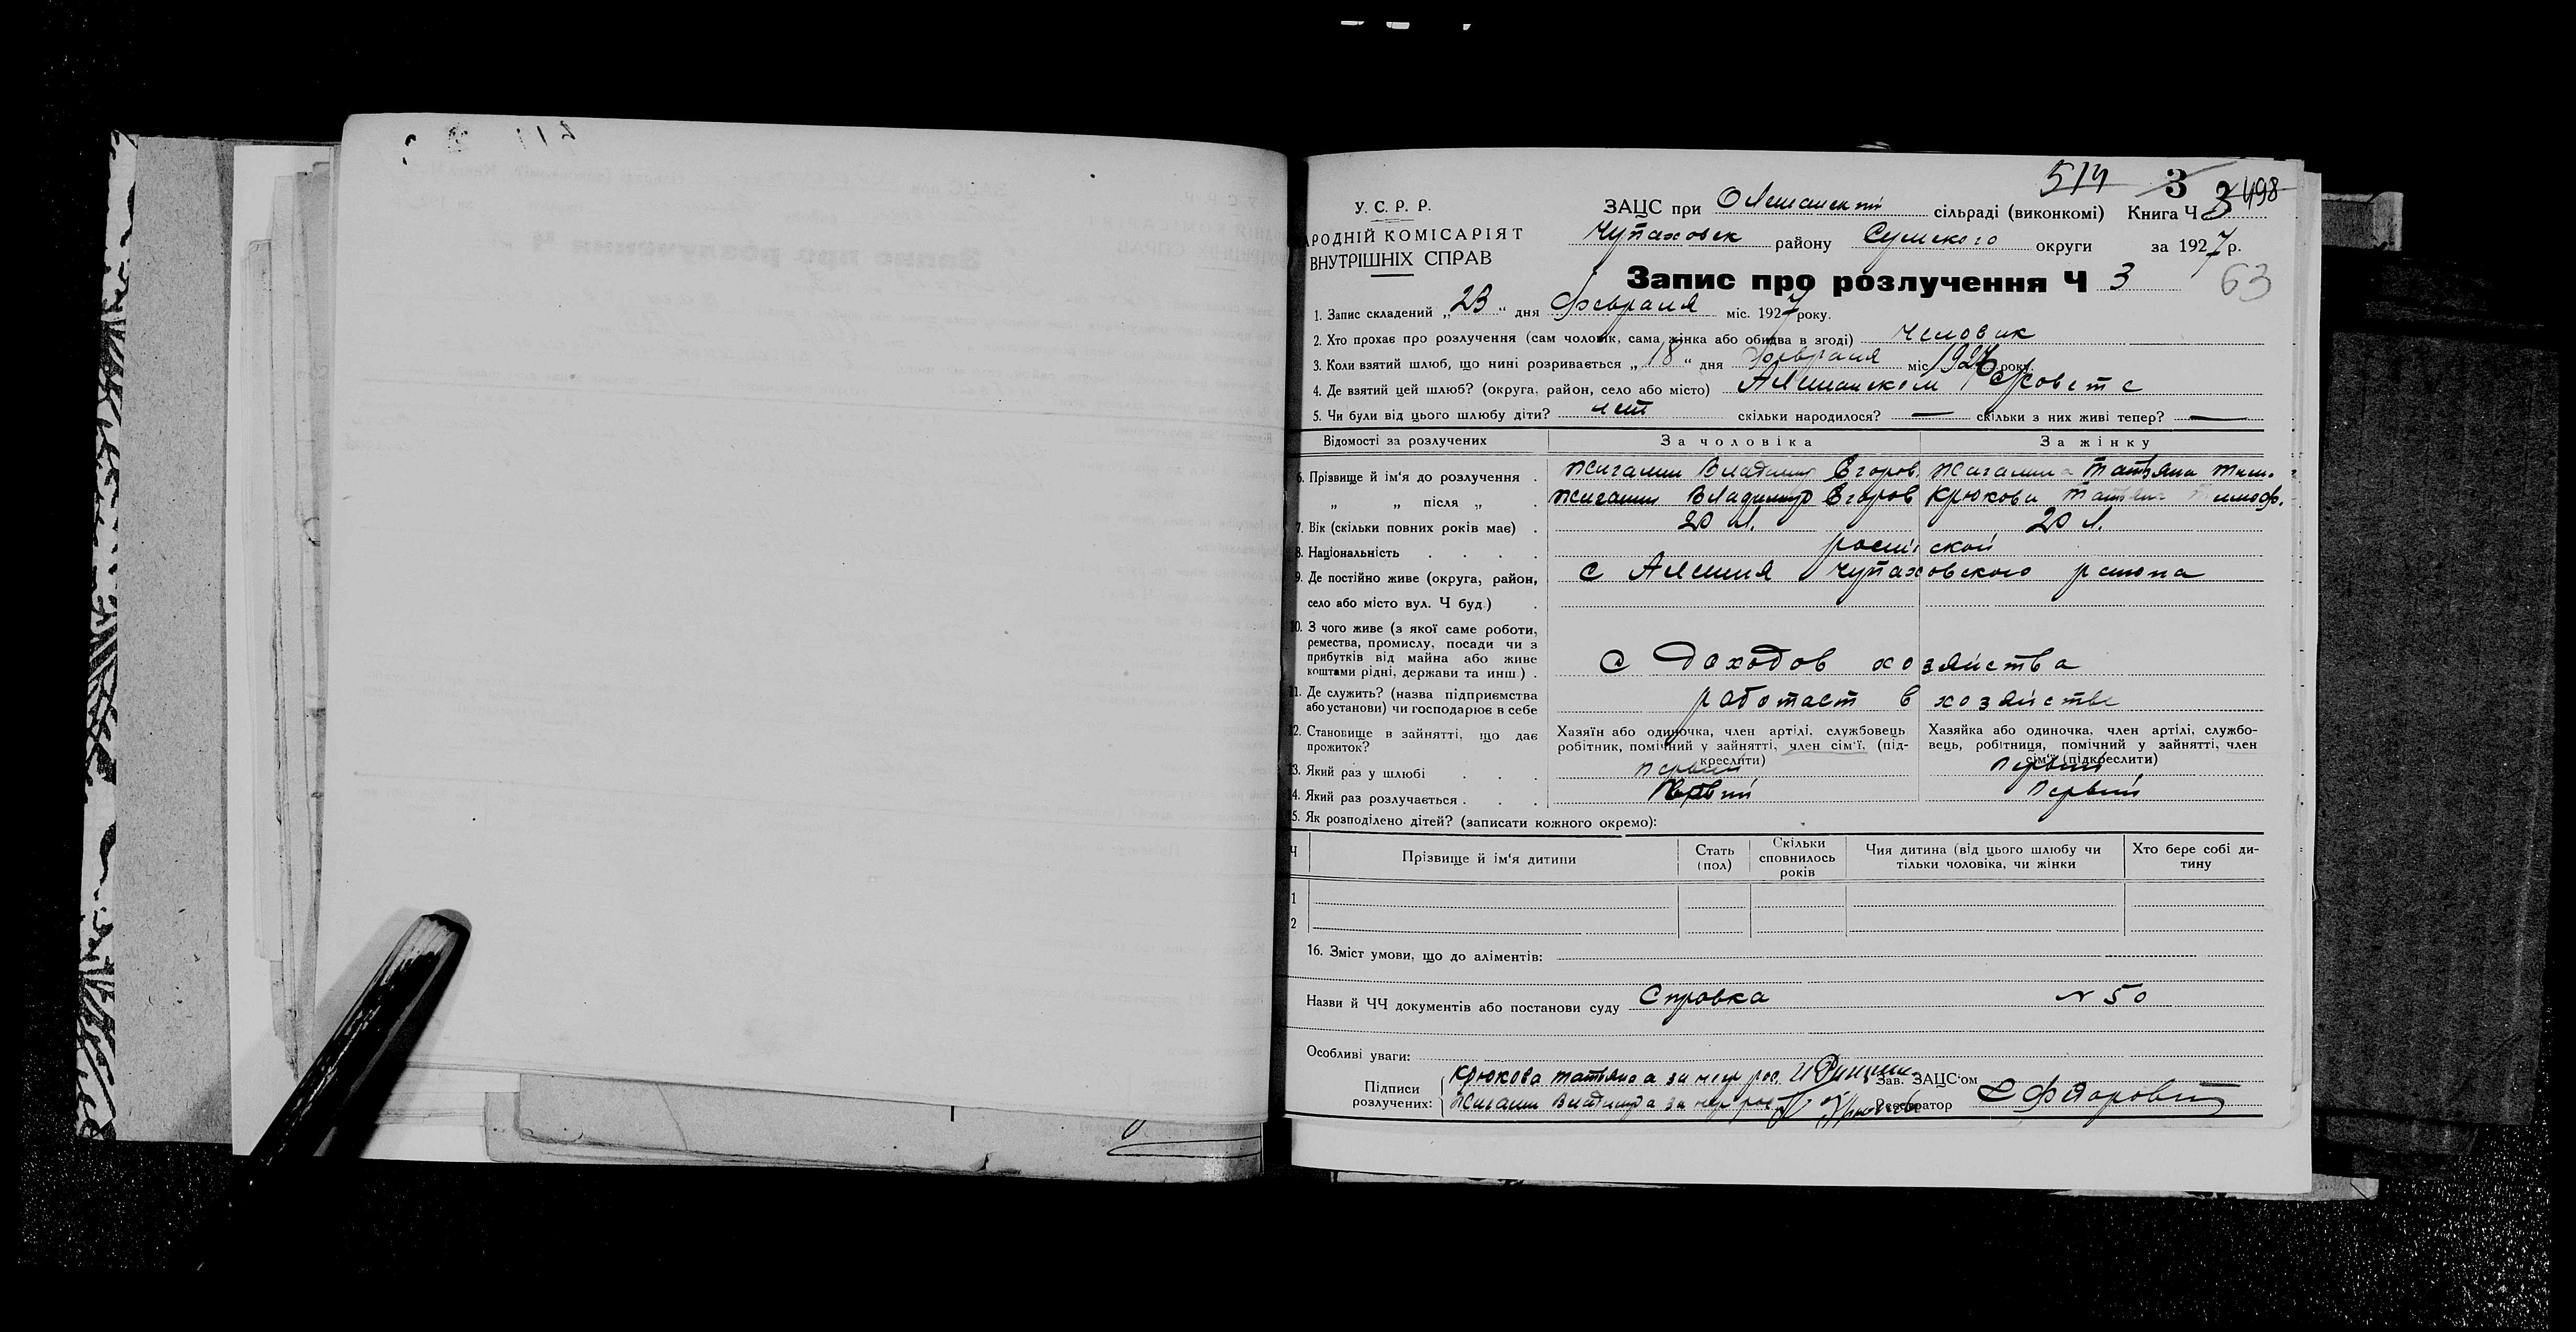 514 3 3 498
У. С. Р. Р.
РОДНІЙ КОМІСАРІЯТ
ВНУТРІШНІХ СПРАВ
ЗАЦС при Олешанскій сільраді (виконкомі) Книга Ч 3
Чупаховск району Сумского округи за 1927 р.
Запис про розлучення Ч 3
63
1. Запис складений „23“ дня Февраля міс. 1927 року.
2. Хто прохає про розлучення (сам чоловік, сама жінка або обидва в згоді) человик
3. Коли взятий шлюб, що нині розривається „18“ дня Февраля міс 1926 року.
4. Де взятий цей шлюб? (округа, район, село або місто) Алешанском с/совете
5. Чи були від цього шлюбу діти? нет скільки народилося? — скільки з них живі тепер? —
Відомості за розлучених За чоловіка За жінку
6. Прізвище й ім'я до розлучення . Жигалин Владимир Егоров Жигалина Татьяна Тим.
„ „ після „ . Жигалин Владимир Егоров Крюкова Татьяна Тимоф.
7. Вік (скільки повних років має) . 20 л. 20 л.
8. Національність . . . . росийской
9. Де постійно живе (округа, район, с Алешня Чупаховского района
село або місто вул. Ч буд.) .
10. З чого живе (з якої саме роботи,
ремества, промислу, посади чи з
прибутків від майна або живе
коштами рідні, держави та инш) . с доходов хозяйства
11. Де служить? (назва підприємства
або установи) чи господарює в себе работает в хозяйстве
12. Становище в зайнятті, що дає
прожиток?
Хазяїн або одиночка, член артілі, службовець
робітник, помічний у зайнятті, член сім'ї, (під-
креслити)
Хазяйка або одиночка, член артілі, службо-
вець, робітниця, помічний у зайнятті, член
сім'ї (підкреслити)
13. Який раз у шлюбі . . . первий первий
14. Який раз розлучається . . . Первий первий
15. Як розподілено дітей? (записати кожного окремо):
Ч Прізвище й ім'я дитини Стать (пол) Скільки сповнилось років Чия дитина (від цього шлюбу чи тільки чоловіка, чи жінки Хто бере собі ди- тину
1
2
16. Зміст умови, що до аліментів:
Назви й ЧЧ документів або постанови суду Справка N 50
Особливі уваги:
Підписи розлучених: Крюкова Татьяна а за негр рос. Зав. ЗАЦС'ом
Жигалин Владимир а за негр рос Реєстратор